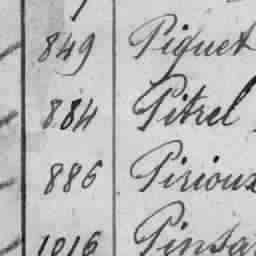 849 Piquet
884 Pitrel
886 Pirioux
1016 Pinsa